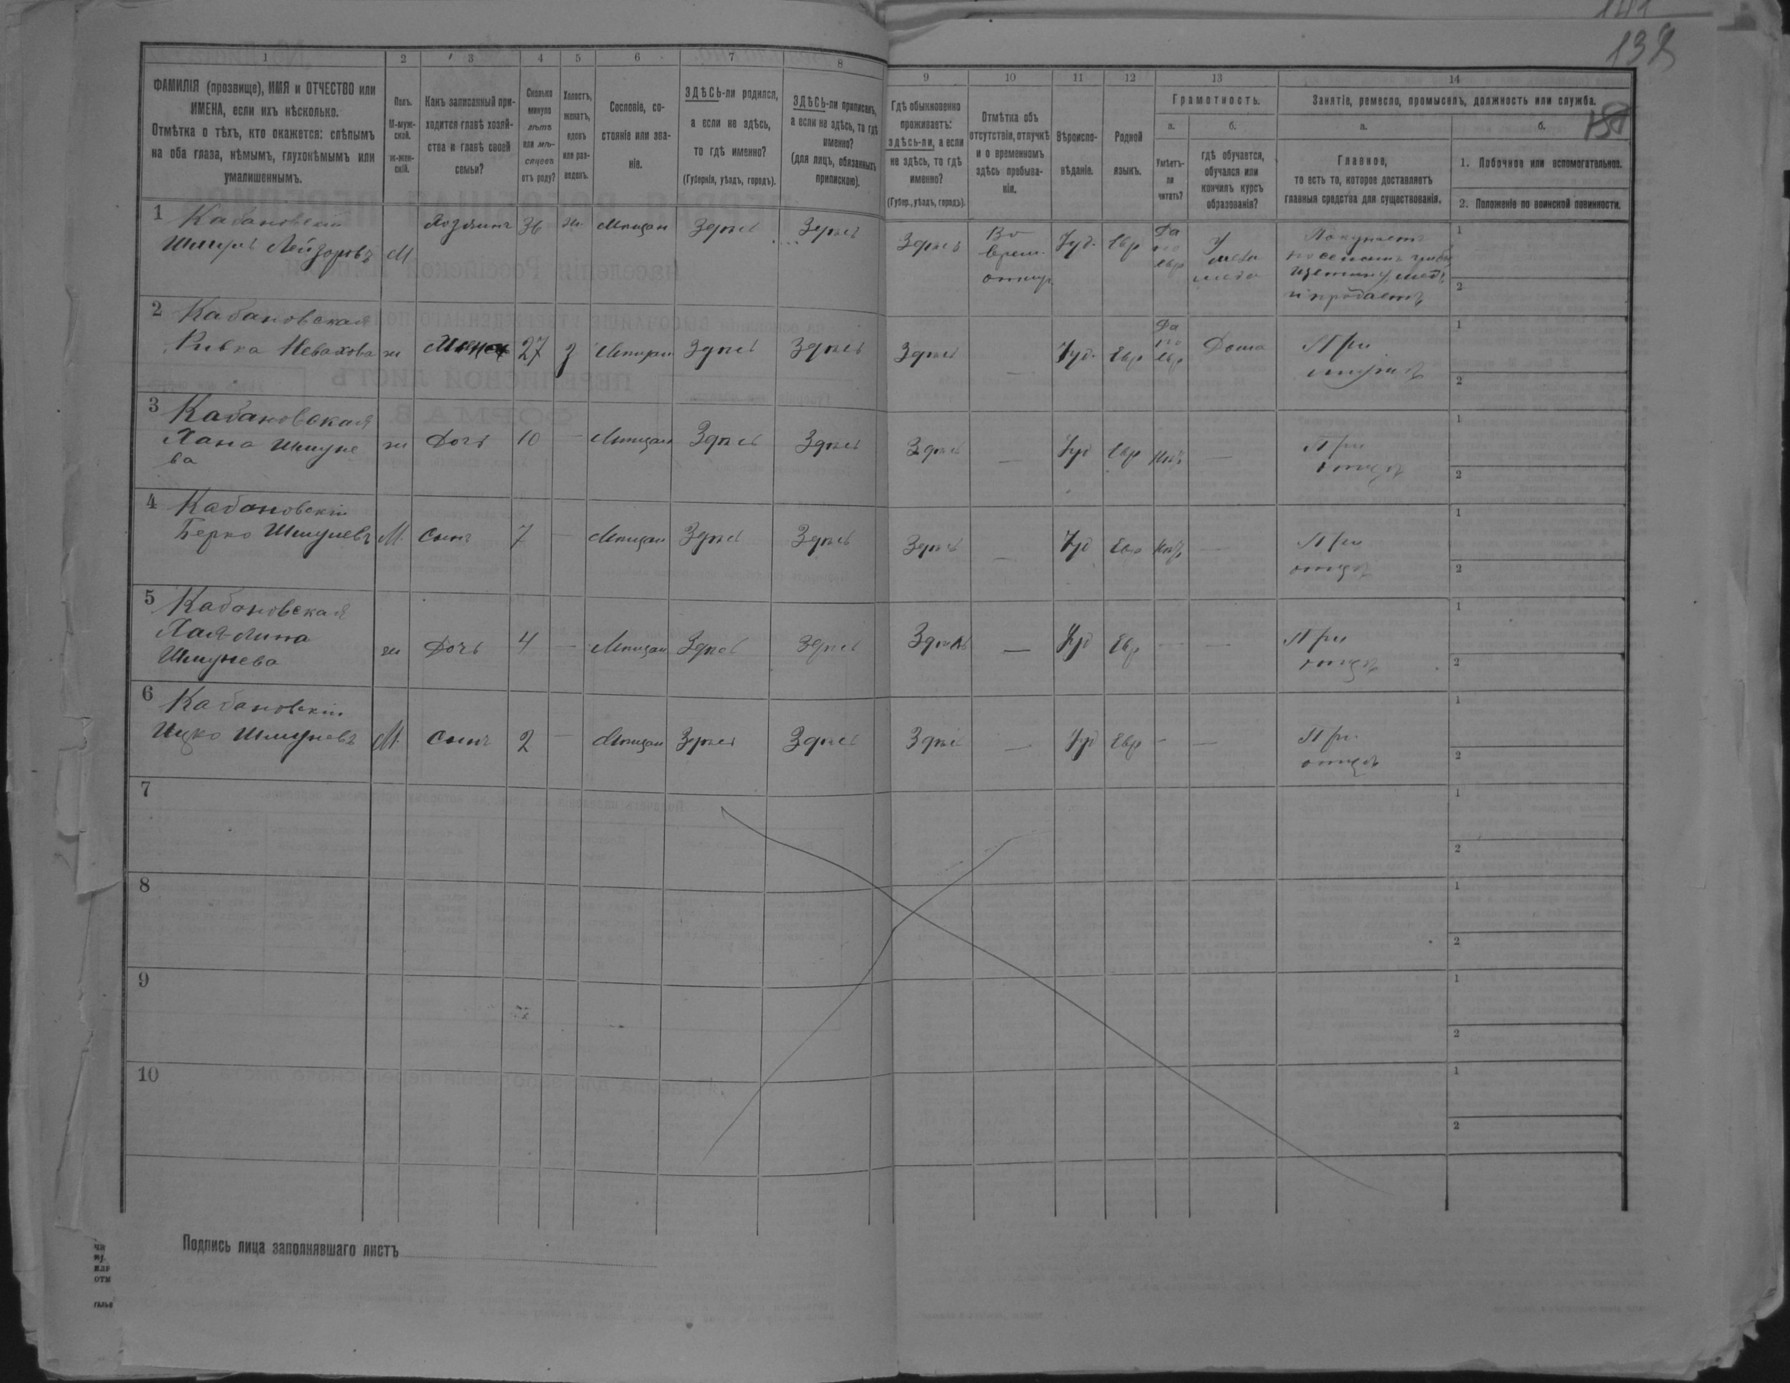 141
132
1 2 3 4 5 6 7 8 9 10 11 12 13 14
ФАМИЛІЯ (прозвище), ИМЯ и ОТЧЕСТВО или
ИМЕНА, если ихъ нѣсколько.
Отмѣтка о тѣхъ, кто окажется: слѣпымъ
на оба глаза, нѣмымъ, глухонѣмымъ или
умалишеннымъ.
Полъ.
М-муж-
ской.
ж-жен-
скій.
Какъ записанный при-
ходится главѣ хозяй-
ства и главѣ своей
семьи?
Сколько
минуло
лѣтъ
или мѣ-
сяцевъ
отъ роду?
Холостъ,
женатъ,
вдовъ
или раз-
веденъ.
Сословіе, со-
стояніе или зва-
ніе.
ЗДѢСЬ-ли родился,
а если не здѣсь,
то гдѣ именно?
(Губернія, уѣздъ, городъ).
ЗДѢСЬ-ли приписанъ,
а если не здѣсь, то гдѣ
именно?
(для лицъ, обязанныхъ
припискою).
Гдѣ обыкновенно
проживаетъ:
здѣсь-ли, а если
не здѣсь, то гдѣ
именно?
(Губер., уѣздъ, городъ).
Отмѣтка объ
отсутствіи, отлучкѣ
и о временномъ
здѣсь пребыва-
ніи.
Вѣроиспо-
вѣданіе.
Родной
языкъ.
Грамотность.
а.
Умѣетъ-
ли
читать?
б.
гдѣ обучается,
обучался или
кончилъ курсъ
образованія?
Занятіе, ремесло, промыселъ, должность или служба.
а.
Главное,
то есть то, которое доставляетъ
главныя средства для существованія.
б.
1. Побочное или вспомогательное.
2. Положеніе по воинской повинности.
1 Кабановскій
Шмуль Лейзоровъ М
Хозяинъ 36 ж. Мѣщан Здѣсь Здѣсь
Здѣсь Во
времен
отлуч Іуд. Евр Да
по
евр У
мела
меда Покупаетъ
щетину, медъ
и продаетъ
1
2
2 Кабановская
Ривка Невахова ж Жена 27 з Мѣщан Здѣсь Здѣсь
Здѣсь — Іуд. Евр Да
по
евр Дома При
мужѣ
1
2
3 Кабановская
Хана Шмуле
ва ж Дочь 10 — Мѣщан Здѣсь Здѣсь
Здѣсь — Іуд Евр Нѣтъ — При
отцѣ
1
2
4 Кабановскій
Берко Шмулевъ М. Сынъ 7 — Мѣщан Здѣсь Здѣсь
Здѣсь — Іуд Евр Нѣтъ — При
отцѣ
1
2
5 Кабановская
Шмулева ж Дочь 4 — Мѣщан Здѣсь Здѣсь
Здѣсь — Іуд Евр — — При
отцѣ
1
2
6 Кабановскій
Ицко Шмулевъ М. Сынъ 2 — Мѣщан Здѣсь Здѣсь
Здѣсь — Іуд Евр — — При
отцѣ
1
2
7
1
2
8
1
2
9
1
2
10
1
2
Подпись лица заполнявшаго листъ